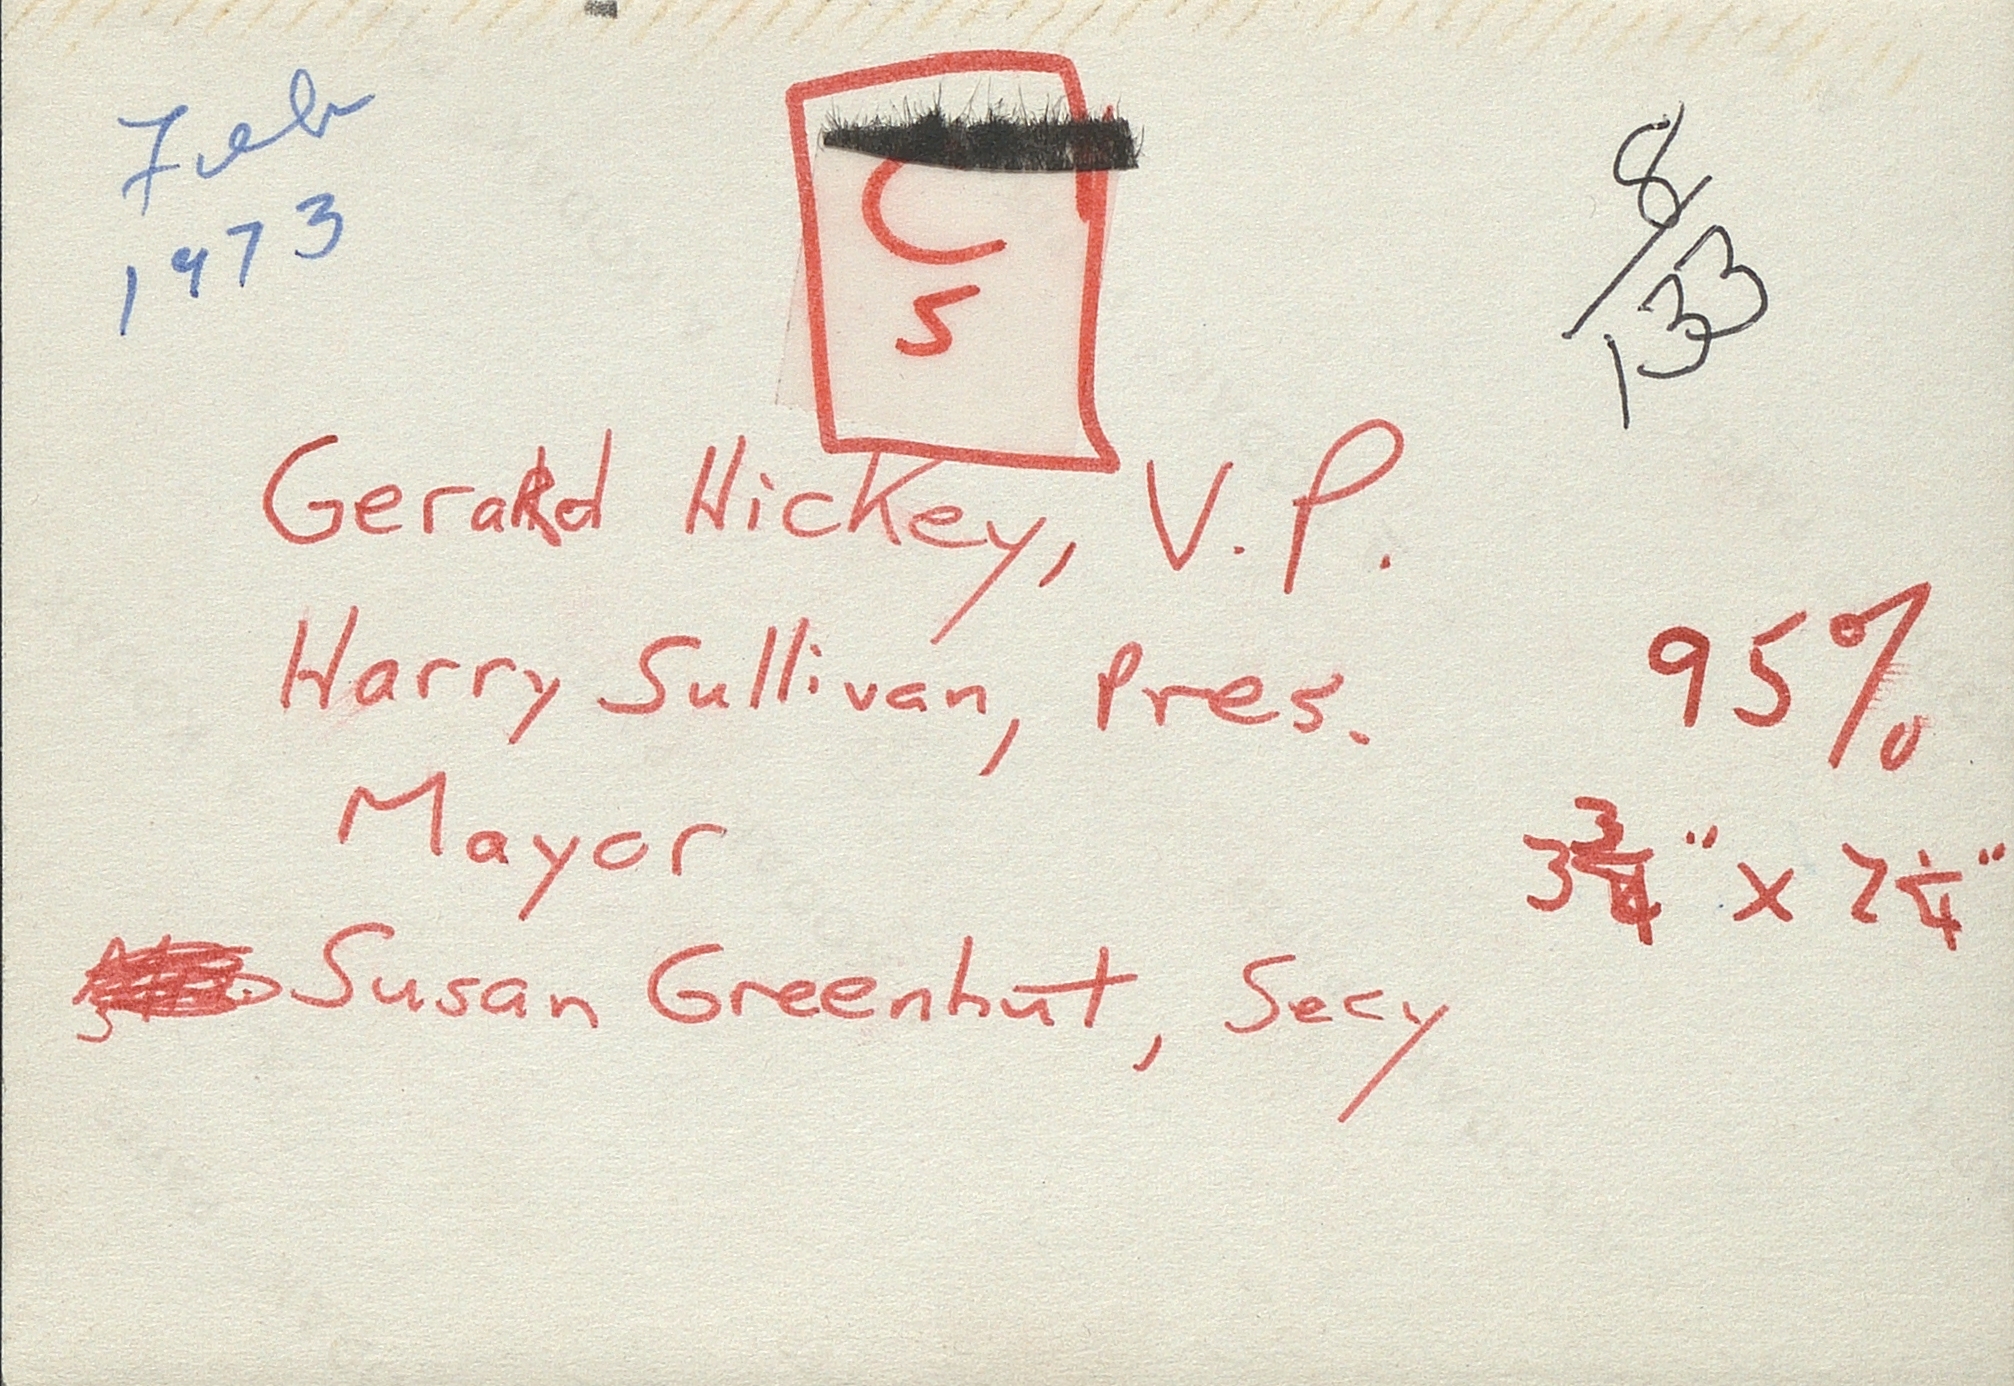 Feb
1973
C
5
8/133
Gerard Hickey, V.P.
Harry Sullivan, Pres.
Mayor
Susan Greenhut, Secy
95%
3 3/4" x 2 1/4"